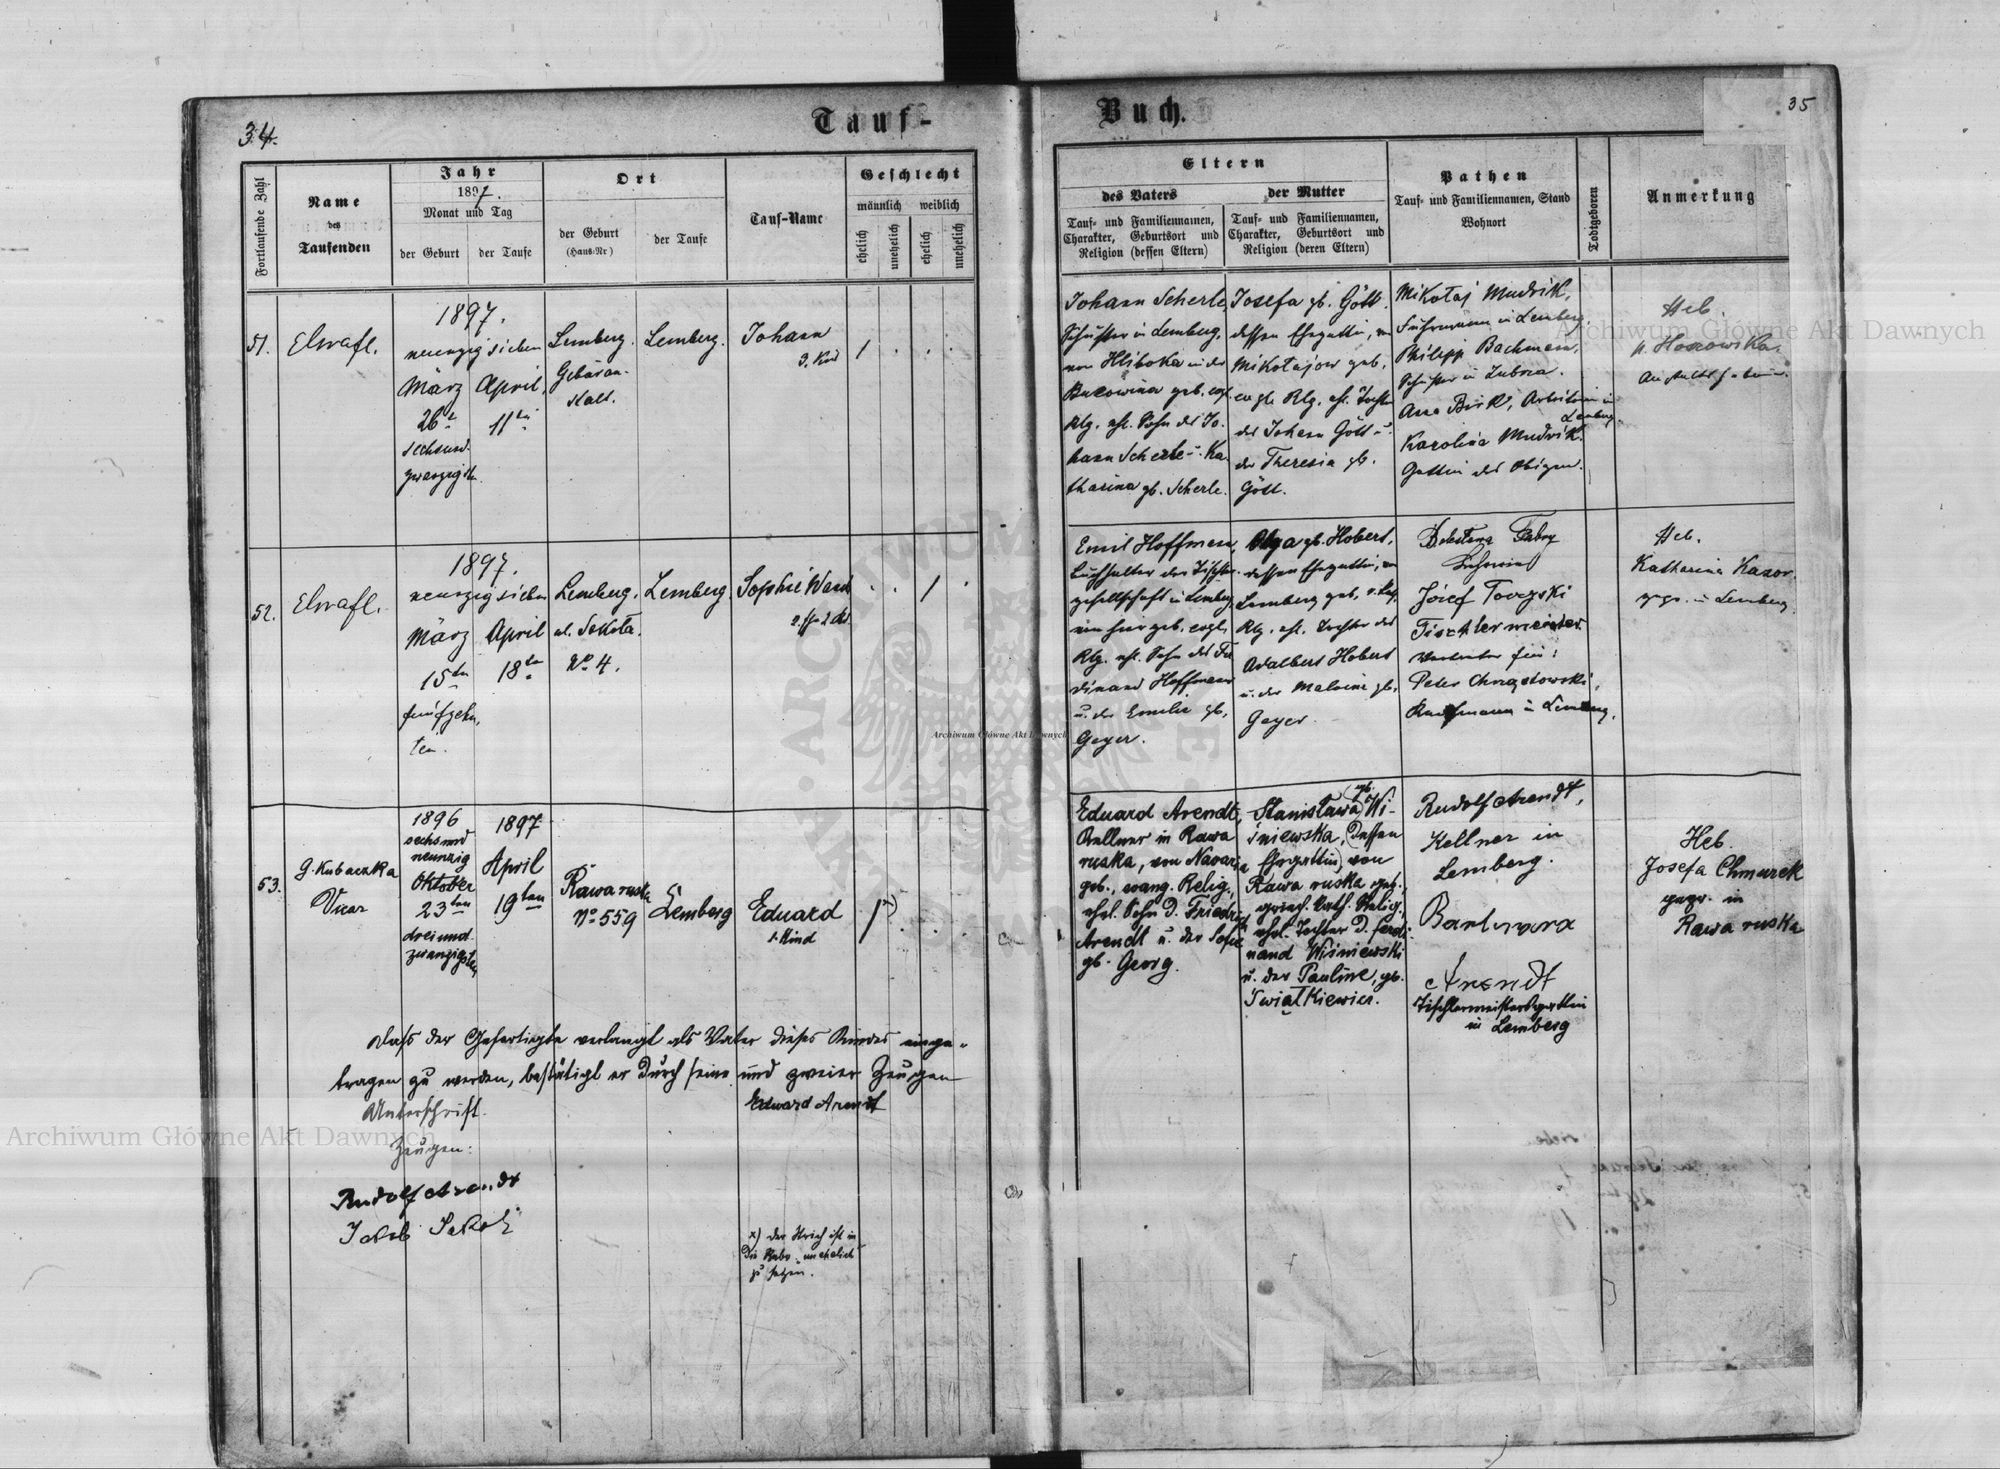 34.
35
Tauf-
Buch.
Fortlaufende Zahl
Name
des
Taufenden
Jahr
1897.
Monat und Tag
der Geburt
der Taufe
Ort
der Geburt
(Haus-Nr)
der Taufe
Tauf-Name
Geschlecht
männlich
weiblich
ehelich
unehelich
ehelich
unehelich
Eltern
des Vaters
Tauf- und Familiennamen,
Charakter, Geburtsort und
Religion (dessen Eltern)
der Mutter
Tauf- und Familiennamen,
Charakter, Geburtsort und
Religion (deren Eltern)
Pathen
Tauf- und Familiennamen, Stand
Wohnort
Todtgeboren
Anmerkung
51.
1897.
neunzigsieben
März
26te
sechsund-
zwanzigsten
April
11ten
Lemberg.
Gebäran-
stalt.
Lemberg.
Johann
3. Kind
1
Johann Scherle,
Schuster in Lemberg,
von Hliboka in der
Bukowina geb. evgl.
Rlg. ehl. Sohn des Jo-
hann Scherle u. Ka-
tharina gb. Scherle.
Josefa gb. Gött.
dessen Ehegattin, von
Mikołajow geb.
evgl. Rlg. ehl. Tochter
des Johann Gött u.
der Theresia gb.
Gött.
Mikołaj Mudrik,
Fuhrmann in Lemberg
Philipp Bachmann,
Schuster in
Karolina Mudrik.
Gattin des Obigen.
Heb.
52.
1897.
neunzigsieben
März
15ten
fünfzehn-
ten.
April
18ten
Lemberg.
ul. Sokoła.
No 4.
Lemberg.
Sophie Wanda
1
Emil Hoffmann,
Buchhalter der Tischler-
gesellschaft in Lemberg
geb. evgl.
Rlg. ehl. Sohn des Fer-
dinand Hoffmann
u. der Emilie gb.
Geyer.
Olga gb. Hobert,
dessen Ehegattin, in
Lemberg geb.
Rlg. ehl. Tochter des
Adalbert Hobert
u. der Malvine gb.
Geyer.
Józef
Tischlermeister
Peter Chrząstowski,
Kaufmann in Lemberg.
Heb.
Katharina
gepr. in Lemberg.
53.
G. Kubaczka
Vicar
1896
sechsund
neunzig
Oktober
23ten
dreiund-
zwanzigsten
1897
April
19ten
Rawa ruska
No 559
Lemberg
Eduard
1. Kind
1 x)
Eduard Arendt,
Kellner in Rawa
ruska, von Navaria
geb., evang. Relig.,
ehel. Sohn d. Friedrich
Arendt u. der Sofie
gb. Georg.
Stanisława (gb. Wi-
śniewska, (dessen
Ehegattin) von
Rawa ruska geb.,
griech. kath. Relig.,
ehel. Tochter d. Ferdi-
nand Wiśniewski
u. der Pauline, gb.
Świątkiewicz.
Rudolf Arendt,
Kellner in
Lemberg.
Barbara
Arendt
Tischlermeistersgattin
in Lemberg
Heb.
Josefa Chmurek
gepr. in
Rawa ruska
Dass der Gefertigte verlangt als Vater dieses Kindes einge-
tragen zu werden, bestätigt er durch seine und zweier Zeugen
Unterschrift.
Eduard Arendt
Zeugen:
Rudolf Arendt
Jakob
x) der Strich ist in
die Rubr. unehelich
zu setzen.
Archiwum Główne Akt Dawnych
Archiwum Główne Akt Dawnych
Archiwum Główne Akt Dawnych